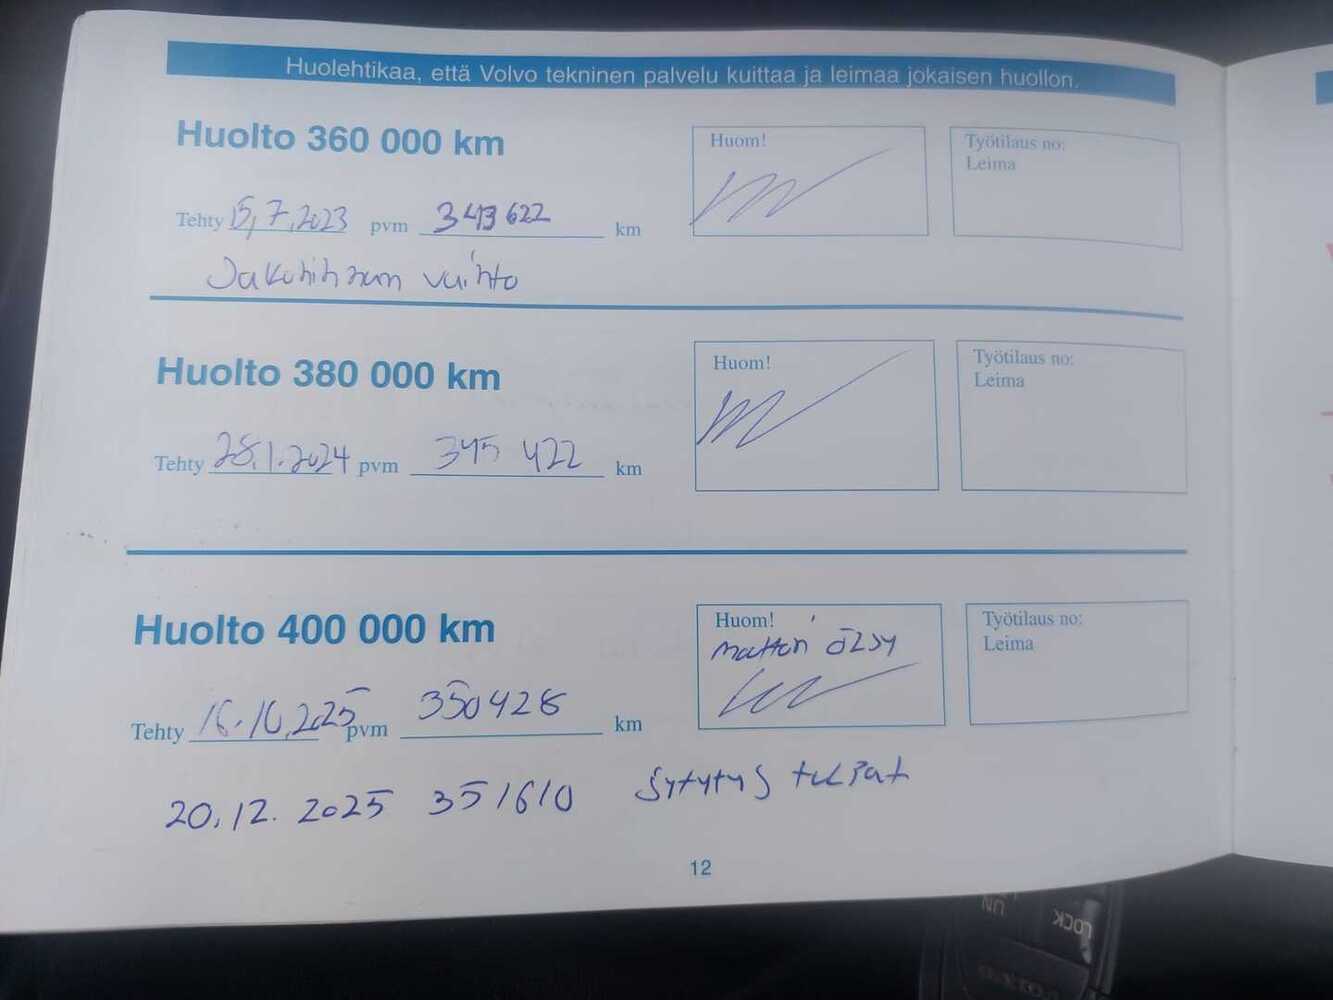 Huolehtikaa, että Volvo tekninen palvelu kuittaa ja leimaa jokaisen huollon.
Huolto 360 000 km
Huom!
Työtilaus no:
Leima
Tehty 15.7.2023 pvm 343 622 km
Jakohihnan vaihto
Huolto 380 000 km
Huom!
Työtilaus no:
Leima
Tehty 28.1.2024 pvm 345 422 km
Huolto 400 000 km
Huom!
öljy
Työtilaus no:
Leima
Tehty 16.10.2025 pvm 350428 km
20.12.2025 351610 Sytytys tulpat
12
UN
LOCK